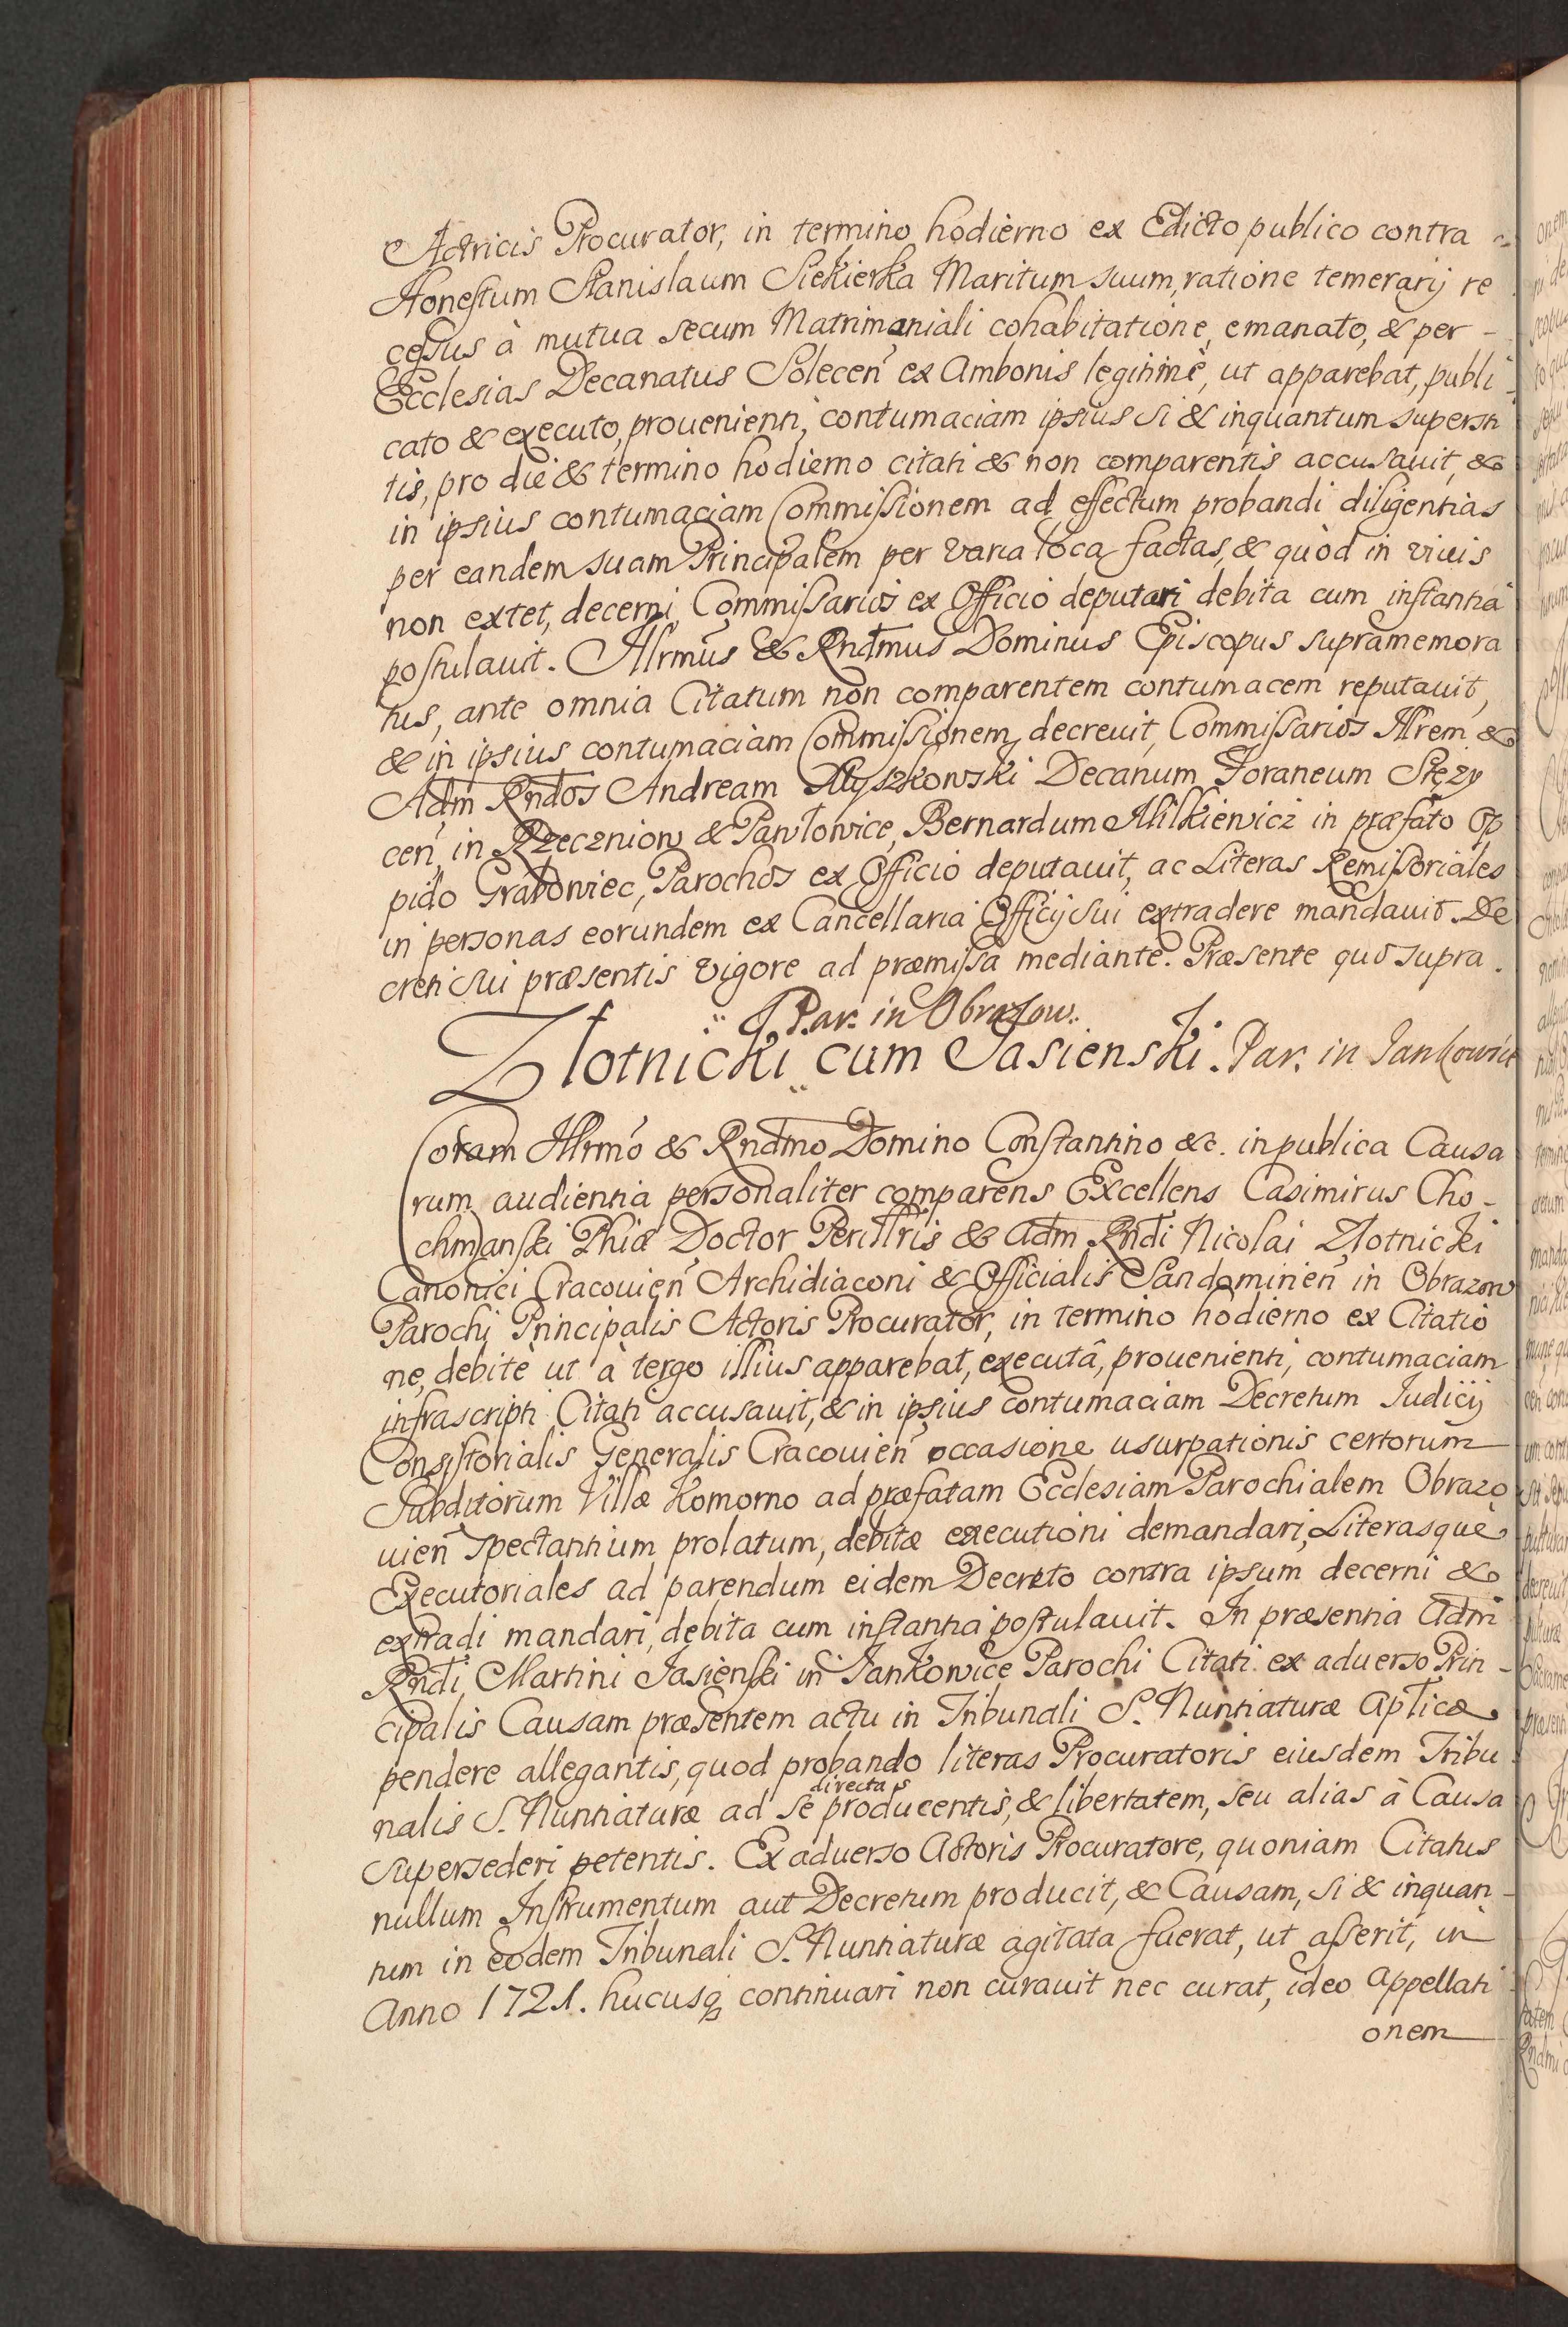 Actricis Procurator, in termino hodierno ex Edicto publico contra
Honestum Stanislaum Siekierka Maritum suum, ratione temerarij re
cessus à mutua secum Matrimoniali cohabitatione, emanato, & per -
Ecclesias Decanatus Solecen ex Ambonis legitimè, ut apparebat, publi -
cato & executo, prouenienti, contumaciam ipsius si & inquantum supersti
tis, pro die & termino hodierno citati & non comparentis accusauit, &
in ipsius contumaciam Commissionem ad effectum probandi diligentias
per eandem suam Principalem per varia loca factas, & quòd in viuis
non extet, decerni, Commissarios ex Officio deputari debita cum instantia
postulauit. Illrmus & Rndmus Dominus Episcopus supramemora
tus, ante omnia Citatum non comparentem contumacem reputauit,
& in ipsius contumaciam Commissionem decreuit, Commissarios Illrem &
Adm Rndos Andream Myszkowski Decanum Foraneum Stęży
cen, in Rzeczniow & Pawłowice, Bernardum Milkiewicz in præfato Op
pido Grabowiec, Parochos ex Officio deputauit, ac Literas Remissoriales
in personas eorundem ex Cancellaria Officij sui extradere mandauit. De
creti sui præsentis vigore ad præmissa mediante. Præsente quo supra.
Par. in Obrazow
Złotnicki cum Jasienski. Par. in Jankowice
Coram Illrmo & Rndmo Domino Constantino &c. in publica Causa
rum audientia personaliter comparens Excellens Casimirus Cho -
chmanski Phiæ Doctor Perillris & Adm Rndi Nicolai Złotnicki
Canonici Cracouien Archidiaconi & Officialis Sandomirien in Obrazow
Parochi Principalis Actoris Procurator, in termino hodierno ex Citatio
ne, debitè ut à tergo illius apparebat, executâ, prouenienti, contumaciam
infrascripti Citati accusauit, & in ipsius contumaciam Decretum Judicij
Consistorialis Generalis Cracouien occasione usurpationis certorum
Subditorum Villæ Komorno ad præfatam Ecclesiam Parochialem Obrazo
uien spectantium prolatum, debitæ executioni demandari, Literasque
Executoriales ad parendum eidem Decreto contra ipsum decerni &
extradi mandari, debita cum instantia postulauit. In præsentia Adm
Rndi Martini Jasienski in Jankowice Parochi Citati ex aduerso Prin -
cipalis Causam præsentem actu in Tribunali S. Nuntiaturæ Aplicæ
pendere allegantis, quod probando literas Procuratoris eiusdem Tribu
nalis S. Nuntiaturæ ad se directas producentis, & libertatem, seu alias à Causa
supersederi petentis. Ex aduerso Actoris Procuratore, quoniam Citatus
nullum Instrumentum aut Decretum producit, & Causam, si & inquan -
tum in eodem Tribunali S. Nuntiaturæ agitata fuerat, ut asserit, in
Anno 1721. hucusq continuari non curauit nec curat, ideo Appellati
onem